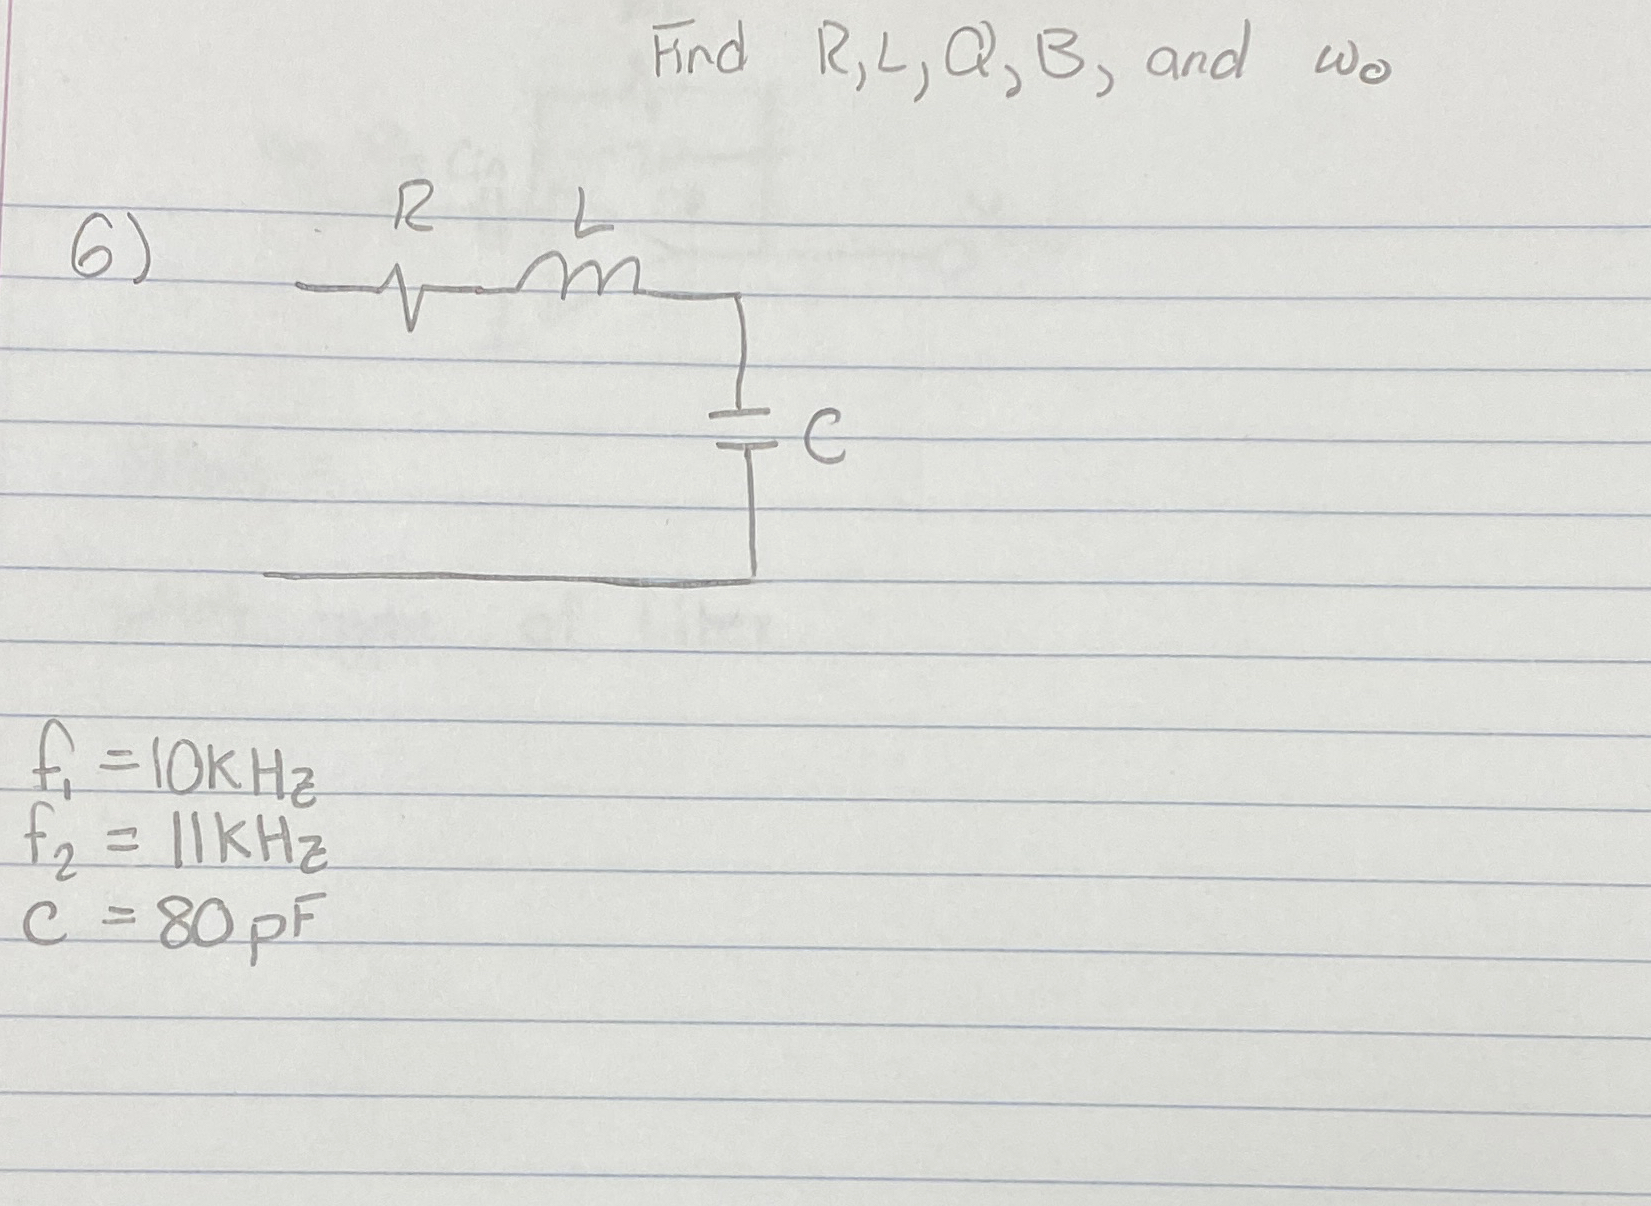 Find R, L, Q, B, and ω₀
R L
6)
C
f₁ = 10KHz
f₂ = 11KHz
C = 80pF